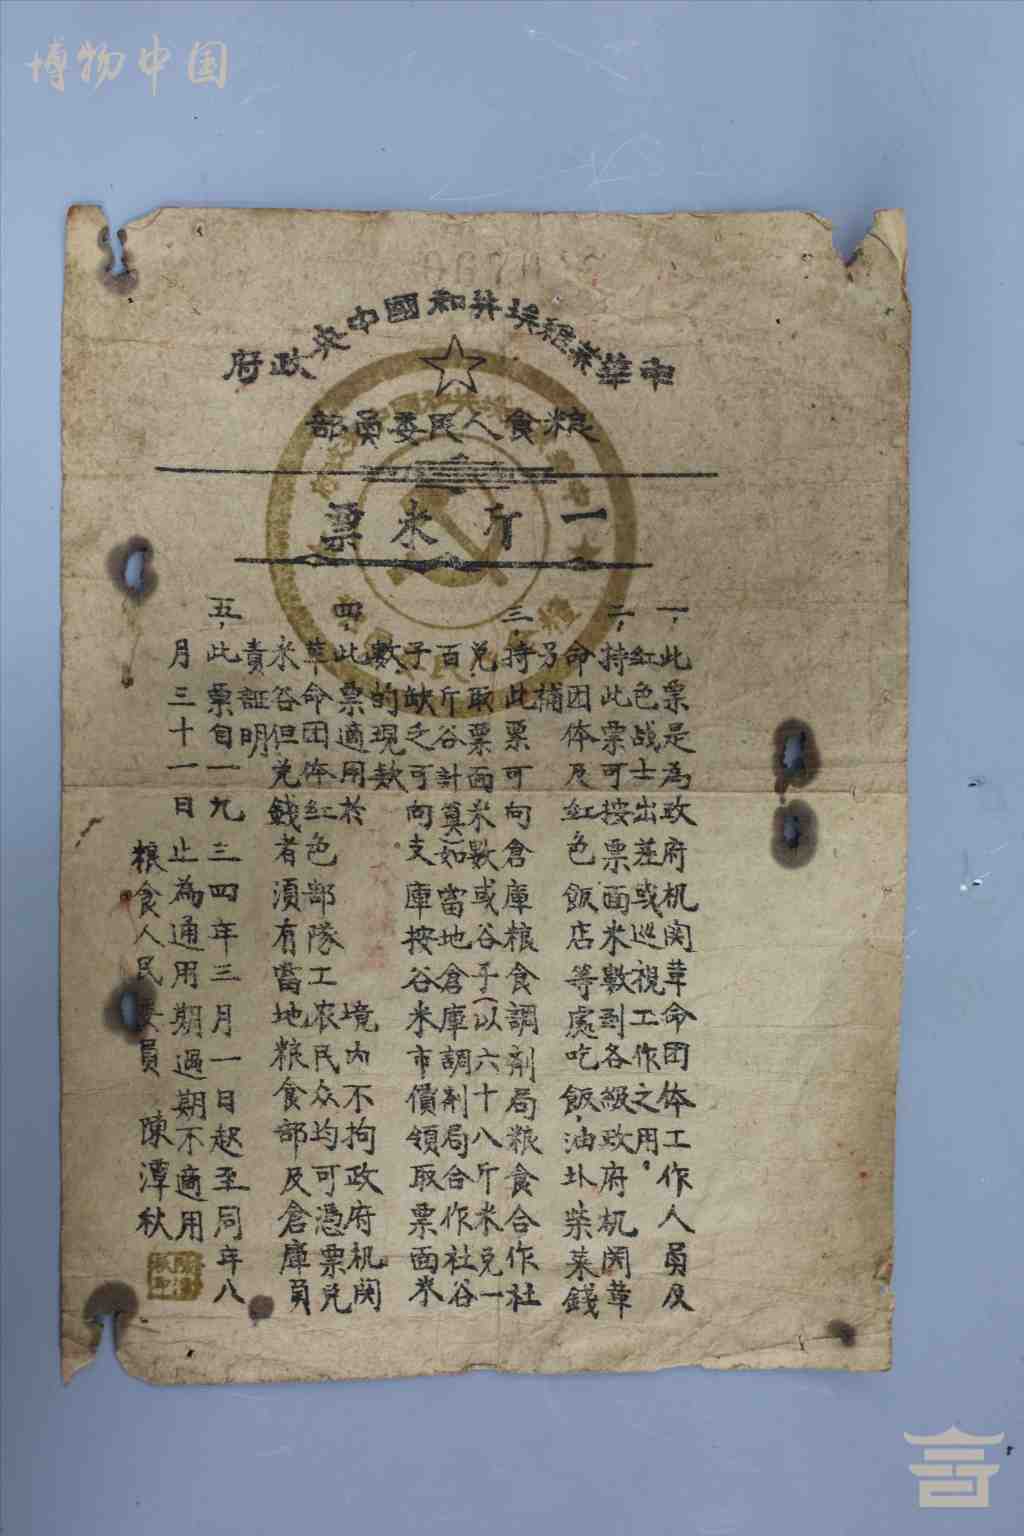 博物中国
中華苏維埃共和國中央政府
粮食人民委員部
一斤米票
一,此票是為政府机関革命団体工作人員及
红色战士出差或巡視工作之用。
二,持此票可按票面米數到各級政府机関革
命団体及红色飯店等處吃飯,油圤柴菜錢
另補
三,持此票可向倉庫粮食調剂局粮食合作社
兑取票面米數或谷子(以六十八斤米兑一
百斤谷計算)如當地倉庫調剂局合作社谷
子缺乏可向支庫按谷米市價領取票面米
數的現款
四,此票適用於 境内不拘政府机関
革命団体红色部隊工农民众均可憑票兑
米谷但兑錢者須有當地粮食部及倉庫員
責証明
五,此票自一九三四年三月一日起至同年八
月三十一日止為通用期過期不適用
粮食人民委員 陳潭秋